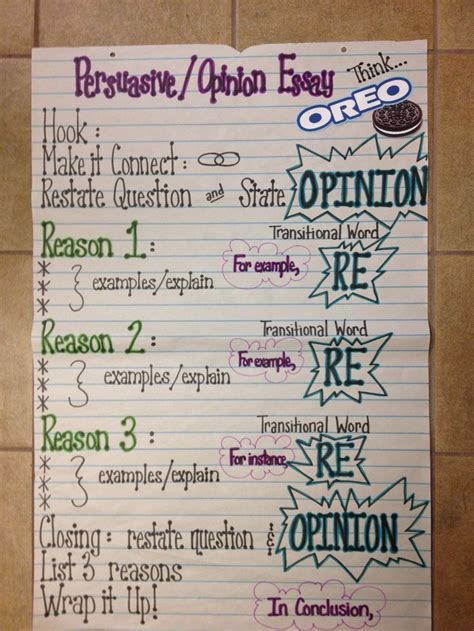 Persuasive/Opinion Essay Think...
OREO
Hook :
Make it Connect :
Restate Question and State OPINION
Reason 1 : Transitional Word
examples/explain For example, RE
Reason 2 : Transitional Word
examples/explain For example, RE
Reason 3 : Transitional Word
examples/explain For instance, RE
Closing : restate question & OPINION
List 3 reasons
Wrap it Up! In Conclusion,